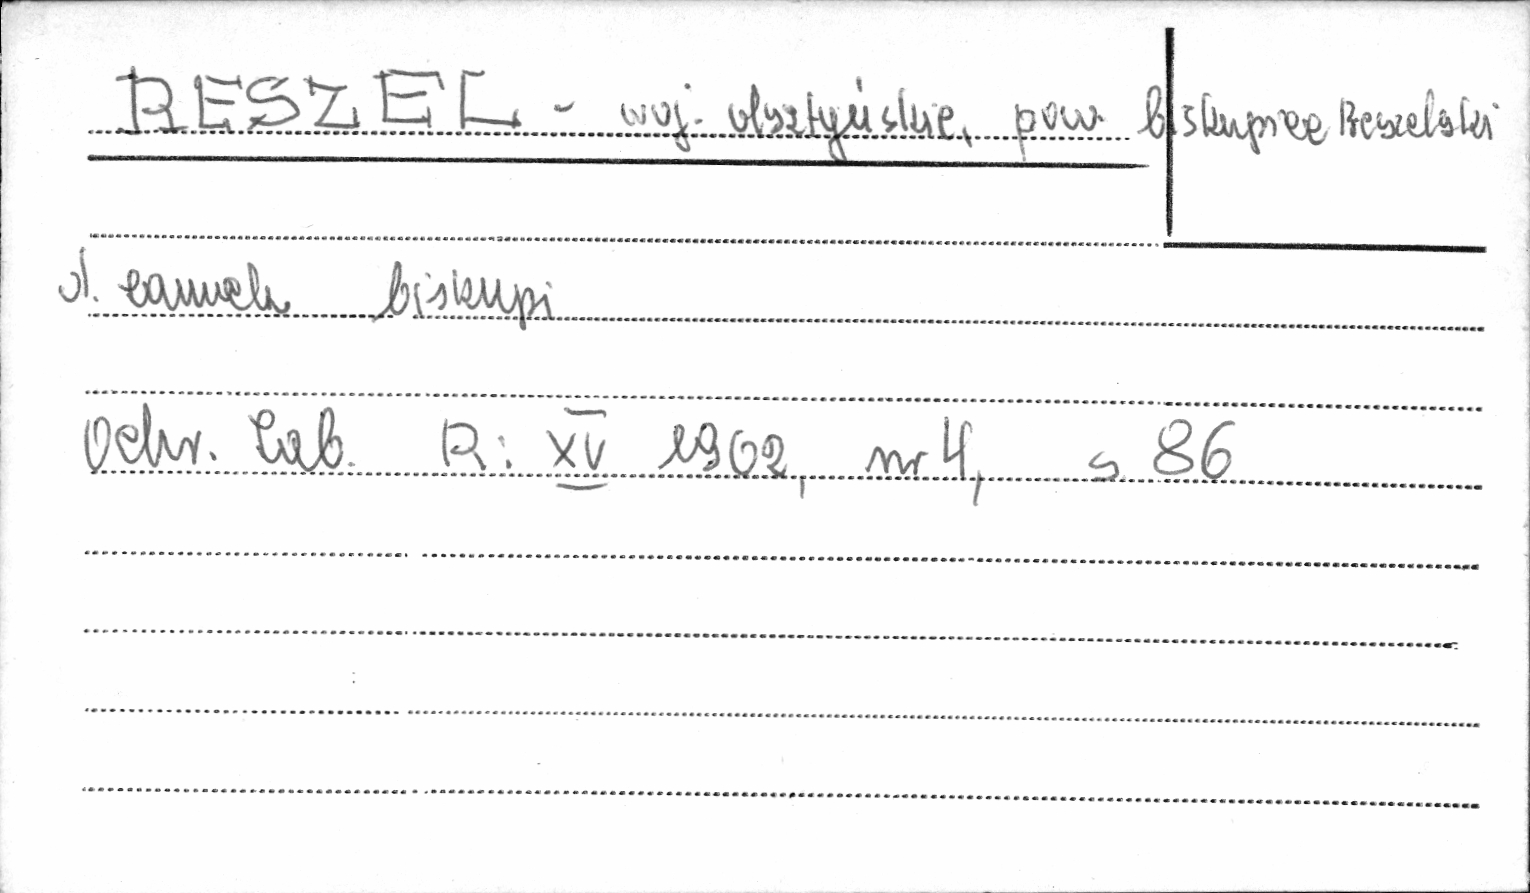 RESZEL - woj. olsztyńskie, pow. biskupiec Reszelski
d. zamek biskupi
Ochr. Zab. R: XV 1962, nr 4, s 86